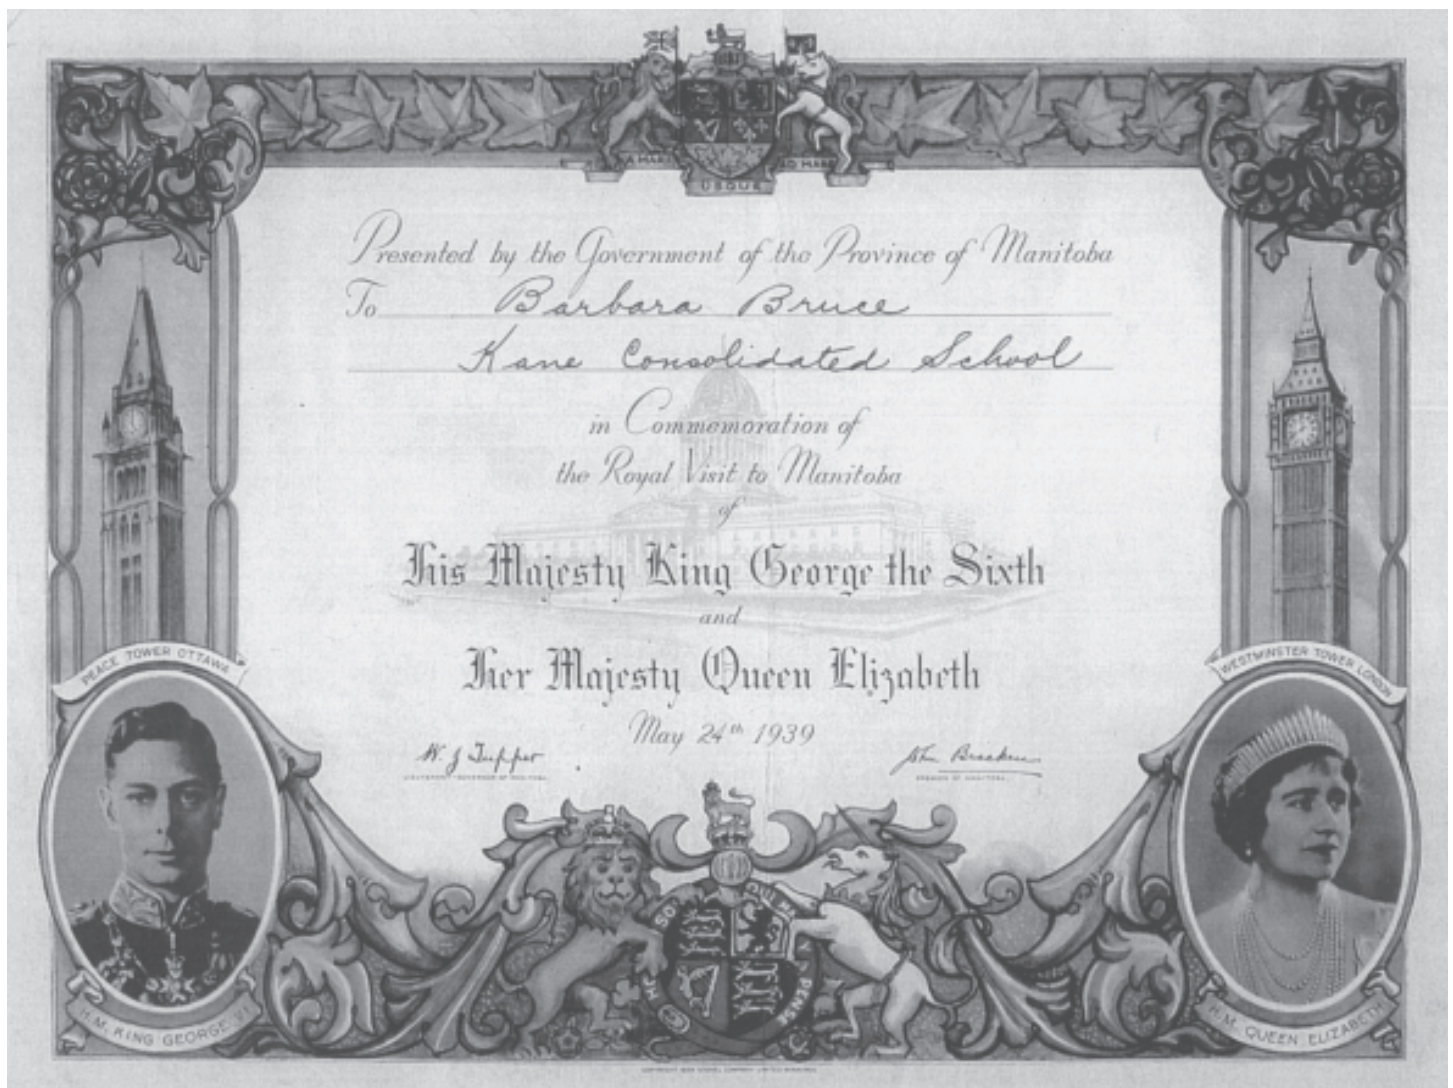 A MARI USQUE AD MARE
Presented by the Government of the Province of Manitoba
To Barbara Bruce
Kane Consolidated School
in Commemoration of
the Royal Visit to Manitoba
of
His Majesty King George the Sixth
and
Her Majesty Queen Elizabeth
May 24th 1939
W. J. Tupper
John Bracken
LIEUTENANT GOVERNOR OF MANITOBA
PREMIER OF MANITOBA
PEACE TOWER OTTAWA
WESTMINSTER TOWER LONDON
H.M. KING GEORGE VI
H.M. QUEEN ELIZABETH